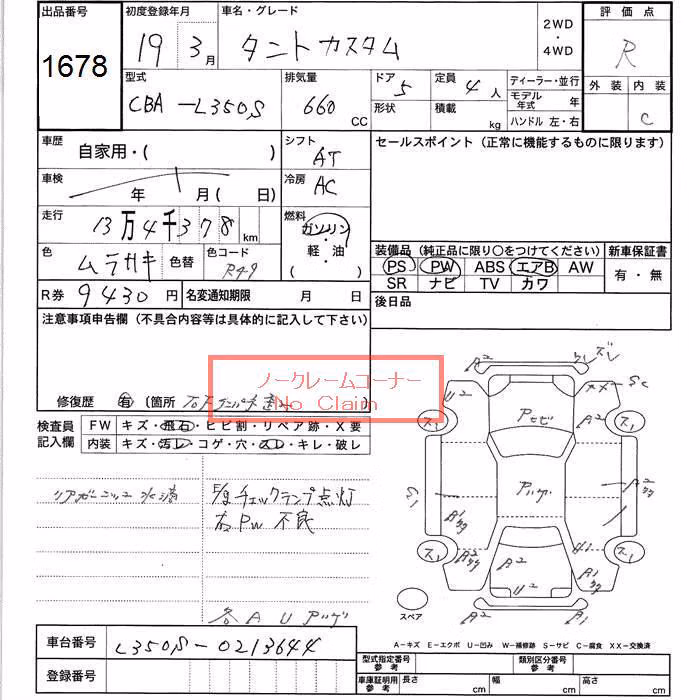 出品番号
1678
初度登録年月
19 3月
車名・グレード
タントカスタム
2WD
・
4WD
評価点
R
外装 内装
C
型式
CBA-L350S
排気量
660 CC
ドア 5
形状
定員 4人
積載 kg
ディーラー・並行
モデル年式 年
ハンドル 左・右
車歴
自家用・( )
シフト
AT
車検
年 月( 日)
冷房
AC
走行
13万4千378 km
燃料
ガソリン
・
軽油
( )
色
ムラサキ
色替
色コード
R49
R券 9430円
名変通知期限 月 日
セールスポイント(正常に機能するものに限ります)
装備品(純正品に限り○をつけてください)
PS PW ABS エアB AW
SR ナビ TV カワ
新車保証書
有・無
後日品
注意事項申告欄(不具合内容等は具体的に記入して下さい)
ノークレームコーナー
No Claim
修復歴 有 〔箇所
検査員記入欄
FW キズ・飛石・ヒビ割・リペア跡・X要
内装 キズ・汚レ・コゲ・穴・スレ・キレ・破レ
E/g チェックランプ点灯
右PW 不良
各 A U アツゲ
A2
ズレ
U2
スペア
A2
A1
A-キズ E-エクボ U-凹み W-補修跡 S-サビ C-腐食 XX-交換済
車台番号 L350S-0213644
登録番号
型式指定番号 参考
類別区分番号 参考
車庫証明用 参考 長さ cm 幅 cm 高さ cm